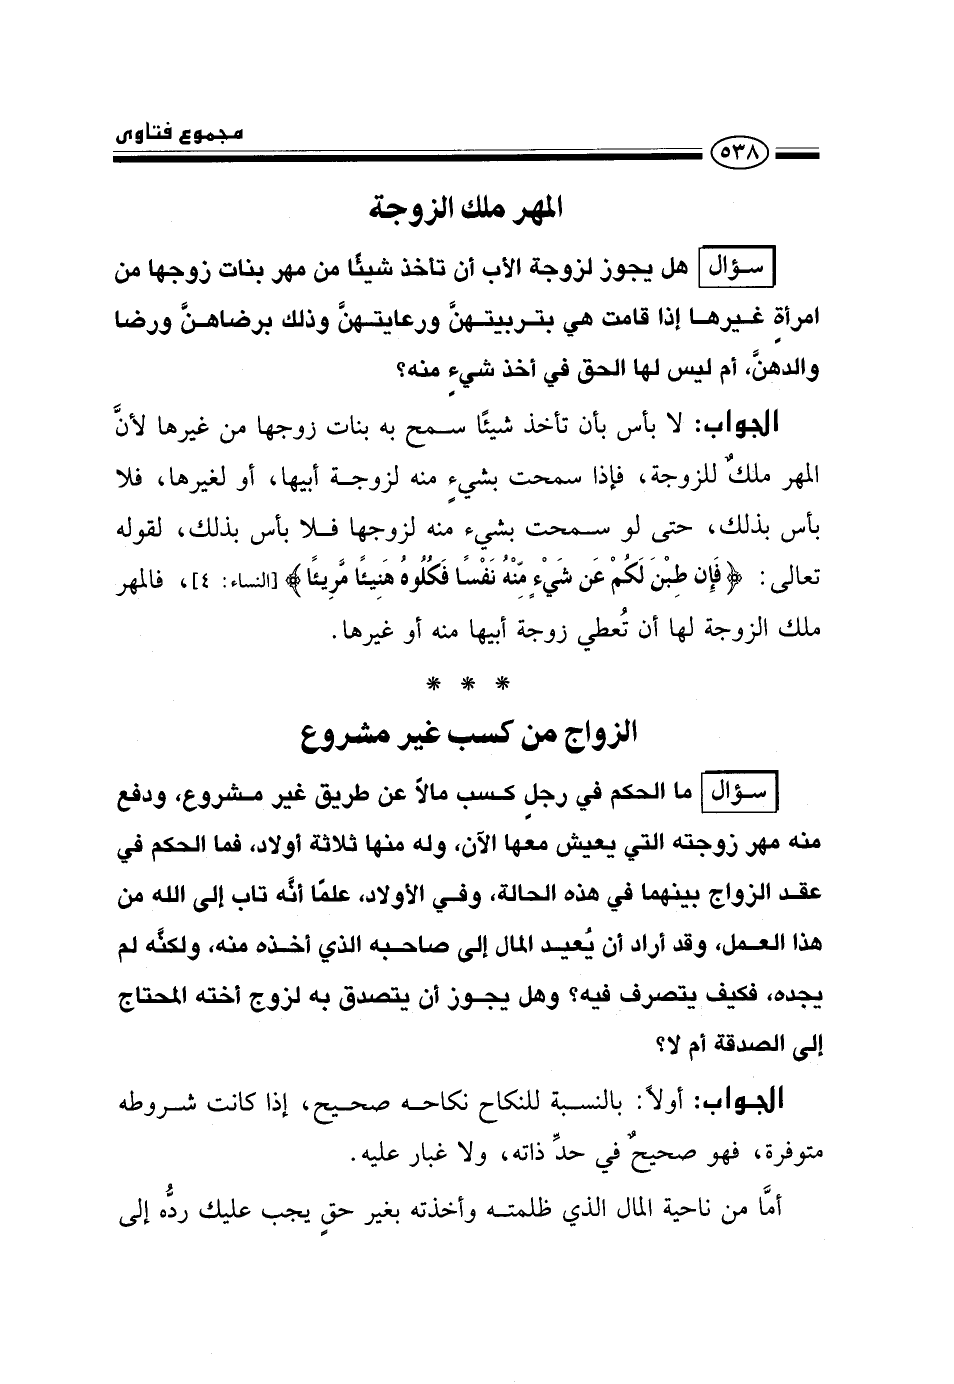 مجموع فتاوى
٥٣٨
المهر ملك الزوجة
سؤال هل يجوز لزوجة الأب أن تأخذ شيئًا من مهر بنات زوجها من
امرأةٍ غيرها إذا قامت هي بتربيتهنَّ ورعايتهنَّ وذلك برضاهنَّ ورضا
والدهنَّ، أم ليس لها الحق في أخذ شيءٍ منه؟
الجواب: لا بأس بأن تأخذ شيئًا سمح به بنات زوجها من غيرها لأنَّ
المهر ملكٌ للزوجة، فإذا سمحت بشيءٍ منه لزوجة أبيها، أو لغيرها، فلا
بأس بذلك، حتى لو سمحت بشيء منه لزوجها فلا بأس بذلك، لقوله
تعالى: ﴿فَإِن طِبْنَ لَكُمْ عَن شَيْءٍ مِّنْهُ نَفْسًا فَكُلُوهُ هَنِيئًا مَّرِيئًا﴾ [النساء: ٤]، فالمهر
ملك الزوجة لها أن تُعطي زوجة أبيها منه أو غيرها.
* * *
الزواج من كسب غير مشروع
سؤال ما الحكم في رجلٍ كسب مالاً عن طريق غير مشروع، ودفع
منه مهر زوجته التي يعيش معها الآن، وله منها ثلاثة أولاد، فما الحكم في
عقد الزواج بينهما في هذه الحالة، وفي الأولاد، علمًا أنَّه تاب إلى الله من
هذا العمل، وقد أراد أن يُعيد المال إلى صاحبه الذي أخذه منه، ولكنَّه لم
يجده، فكيف يتصرف فيه؟ وهل يجوز أن يتصدق به لزوج أخته المحتاج
إلى الصدقة أم لا؟
الجواب: أولاً: بالنسبة للنكاح نكاحه صحيح، إذا كانت شروطه
متوفرة، فهو صحيحٌ في حدِّ ذاته، ولا غبار عليه.
أمَّا من ناحية المال الذي ظلمته وأخذته بغير حقٍ يجب عليك ردُّه إلى